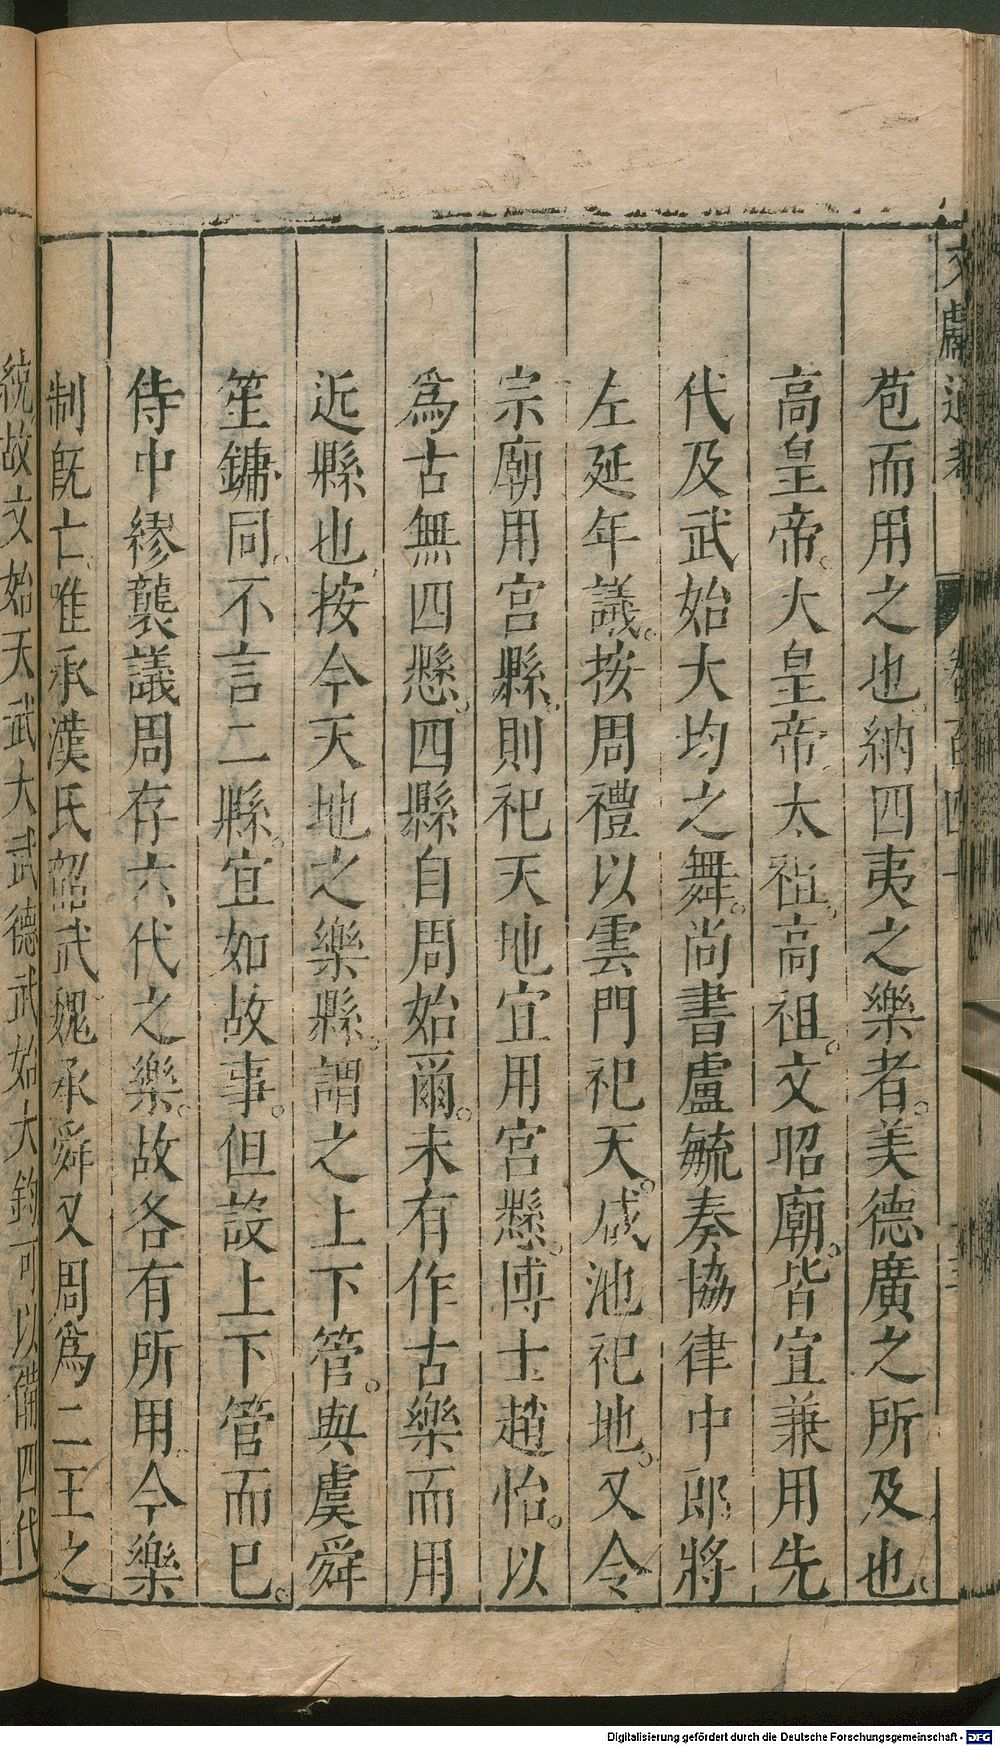 文獻通考 卷百四十 三
苞而用之也納四夷之樂者美德廣之所及也
高皇帝大皇帝太祖高祖文昭廟皆宜兼用先
代及武始大均之舞尚書盧毓奏協律中郎將
左延年議按周禮以雲門祀天咸池祀地又令
宗廟用宮縣則祀天地宜用宮懸博士趙怡以
爲古無四懸四縣自周始爾未有作古樂而用
近縣也按今天地之樂縣謂之上下管與虞舜
笙鏞同不言二縣宜如故事但設上下管而已
侍中繆襲議周存六代之樂故各有所用今樂
制旣亡唯承漢氏韶武魏承舜又周爲二王之
統故文始大武武德武始大鈞可以備四代
Digitalisierung gefördert durch die Deutsche Forschungsgemeinschaft - DFG